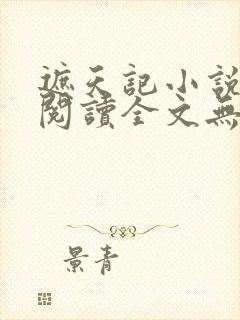 遮天記小說
閱讀全文無
景青